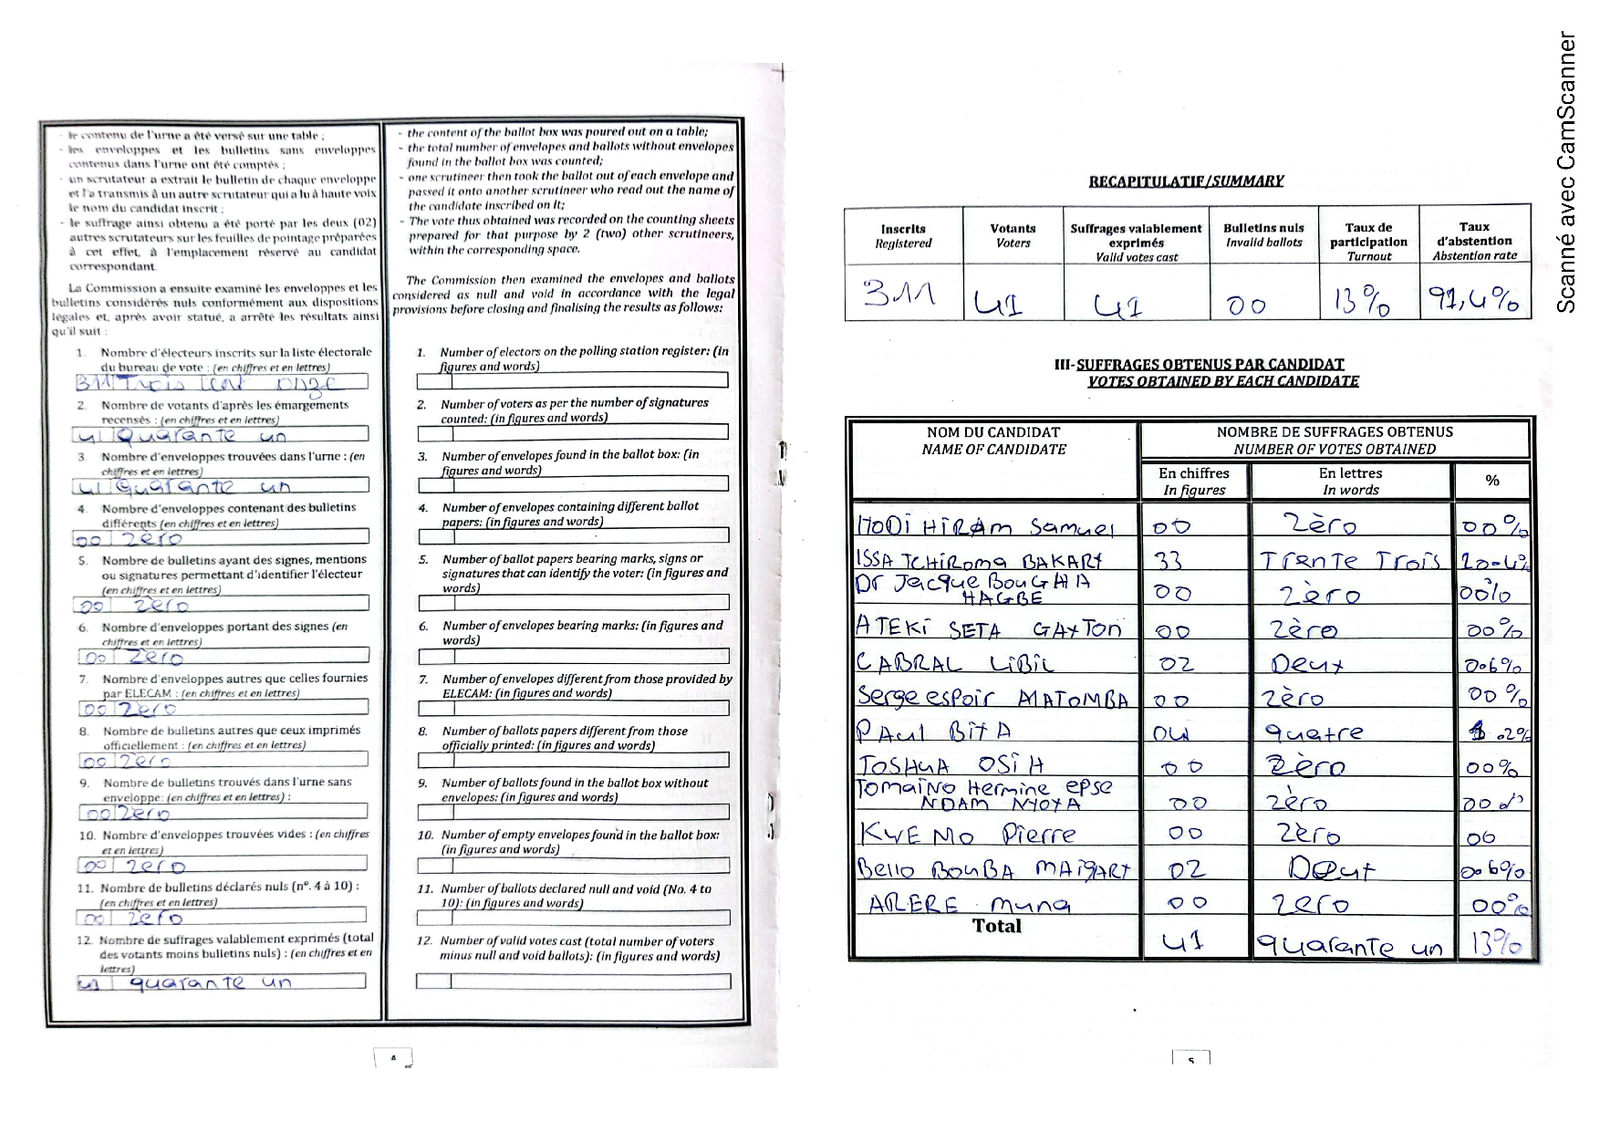 - le contenu de l'urne a été versé sur une table ;
- les enveloppes et les bulletins sans enveloppes
contenus dans l'urne ont été comptés ;
- un scrutateur a extrait le bulletin de chaque enveloppe
et l'a transmis à un autre scrutateur qui a lu à haute voix
le nom du candidat inscrit ;
- le suffrage ainsi obtenu a été porté par les deux (02)
autres scrutateurs sur les feuilles de pointage préparées
à cet effet, à l'emplacement réservé au candidat
correspondant.
La Commission a ensuite examiné les enveloppes et les
bulletins considérés nuls conformément aux dispositions
légales et, après avoir statué, a arrêté les résultats ainsi
qu'il suit :
1. Nombre d'électeurs inscrits sur la liste électorale
du bureau de vote : (en chiffres et en lettres)
311 Trois cent onze
2. Nombre de votants d'après les émargements
recensés : (en chiffres et en lettres)
41 quarante un
3. Nombre d'enveloppes trouvées dans l'urne : (en
chiffres et en lettres)
41 quarante un
4. Nombre d'enveloppes contenant des bulletins
différents (en chiffres et en lettres)
00 zèro
5. Nombre de bulletins ayant des signes, mentions
ou signatures permettant d'identifier l'électeur
(en chiffres et en lettres)
00 zèro
6. Nombre d'enveloppes portant des signes (en
chiffres et en lettres)
00 zèro
7. Nombre d'enveloppes autres que celles fournies
par ELECAM : (en chiffres et en lettres)
00 zèro
8. Nombre de bulletins autres que ceux imprimés
officiellement : (en chiffres et en lettres)
00 zèro
9. Nombre de bulletins trouvés dans l'urne sans
enveloppe: (en chiffres et en lettres) :
00 zèro
10. Nombre d'enveloppes trouvées vides : (en chiffres
et en lettres)
00 zèro
11. Nombre de bulletins déclarés nuls (n°. 4 à 10) :
(en chiffres et en lettres)
00 zèro
12. Nombre de suffrages valablement exprimés (total
des votants moins bulletins nuls) : (en chiffres et en
lettres)
41 quarante un
- the content of the ballot box was poured out on a table;
- the total number of envelopes and ballots without envelopes
found in the ballot box was counted;
- one scrutineer then took the ballot out of each envelope and
passed it onto another scrutineer who read out the name of
the candidate inscribed on it;
- The vote thus obtained was recorded on the counting sheets
prepared for that purpose by 2 (two) other scrutineers,
within the corresponding space.
The Commission then examined the envelopes and ballots
considered as null and void in accordance with the legal
provisions before closing and finalising the results as follows:
1. Number of electors on the polling station register: (in
figures and words)
2. Number of voters as per the number of signatures
counted: (in figures and words)
3. Number of envelopes found in the ballot box: (in
figures and words)
4. Number of envelopes containing different ballot
papers: (in figures and words)
5. Number of ballot papers bearing marks, signs or
signatures that can identify the voter: (in figures and
words)
6. Number of envelopes bearing marks: (in figures and
words)
7. Number of envelopes different from those provided by
ELECAM: (in figures and words)
8. Number of ballots papers different from those
officially printed: (in figures and words)
9. Number of ballots found in the ballot box without
envelopes: (in figures and words)
10. Number of empty envelopes found in the ballot box:
(in figures and words)
11. Number of ballots declared null and void (No. 4 to
10): (in figures and words)
12. Number of valid votes cast (total number of voters
minus null and void ballots): (in figures and words)
4
RECAPITULATIF/SUMMARY
Inscrits Registered | Votants Voters | Suffrages valablement exprimés Valid votes cast | Bulletins nuls Invalid ballots | Taux de participation Turnout | Taux d'abstention Abstention rate
311 | 41 | 41 | 00 | 13% | 91,4%
III-SUFFRAGES OBTENUS PAR CANDIDAT
VOTES OBTAINED BY EACH CANDIDATE
NOM DU CANDIDAT NAME OF CANDIDATE | NOMBRE DE SUFFRAGES OBTENUS NUMBER OF VOTES OBTAINED
En chiffres In figures | En lettres In words | %
HODI HIRAM Samuel | 00 | Zèro | 00%
ISSA TCHIRomA BAKARY | 33 | Trente Trois | 10.4%
Dr Jacque BouGHA HAGBE | 00 | zèro | 00%
ATEKI SETA GAXTON | 00 | Zèro | 00%
CABRAL LIBII | 02 | Deux | 0.6%
Serge espoir MATOMBA | 00 | zèro | 00%
PAul BIYA | 04 | quatre | 1.2%
JOSHUA OSIH | 00 | Zèro | 00%
Tomaino Hermine epse NDAM NYOYA | 00 | zèro | 00
KWEMO Pierre | 00 | Zèro | 00
Bello BouBA MAIGARI | 02 | Deux | 0.6%
AKERE muna | 00 | zero | 00%
Total | 41 | quarante un | 13%
5
Scanné avec CamScanner